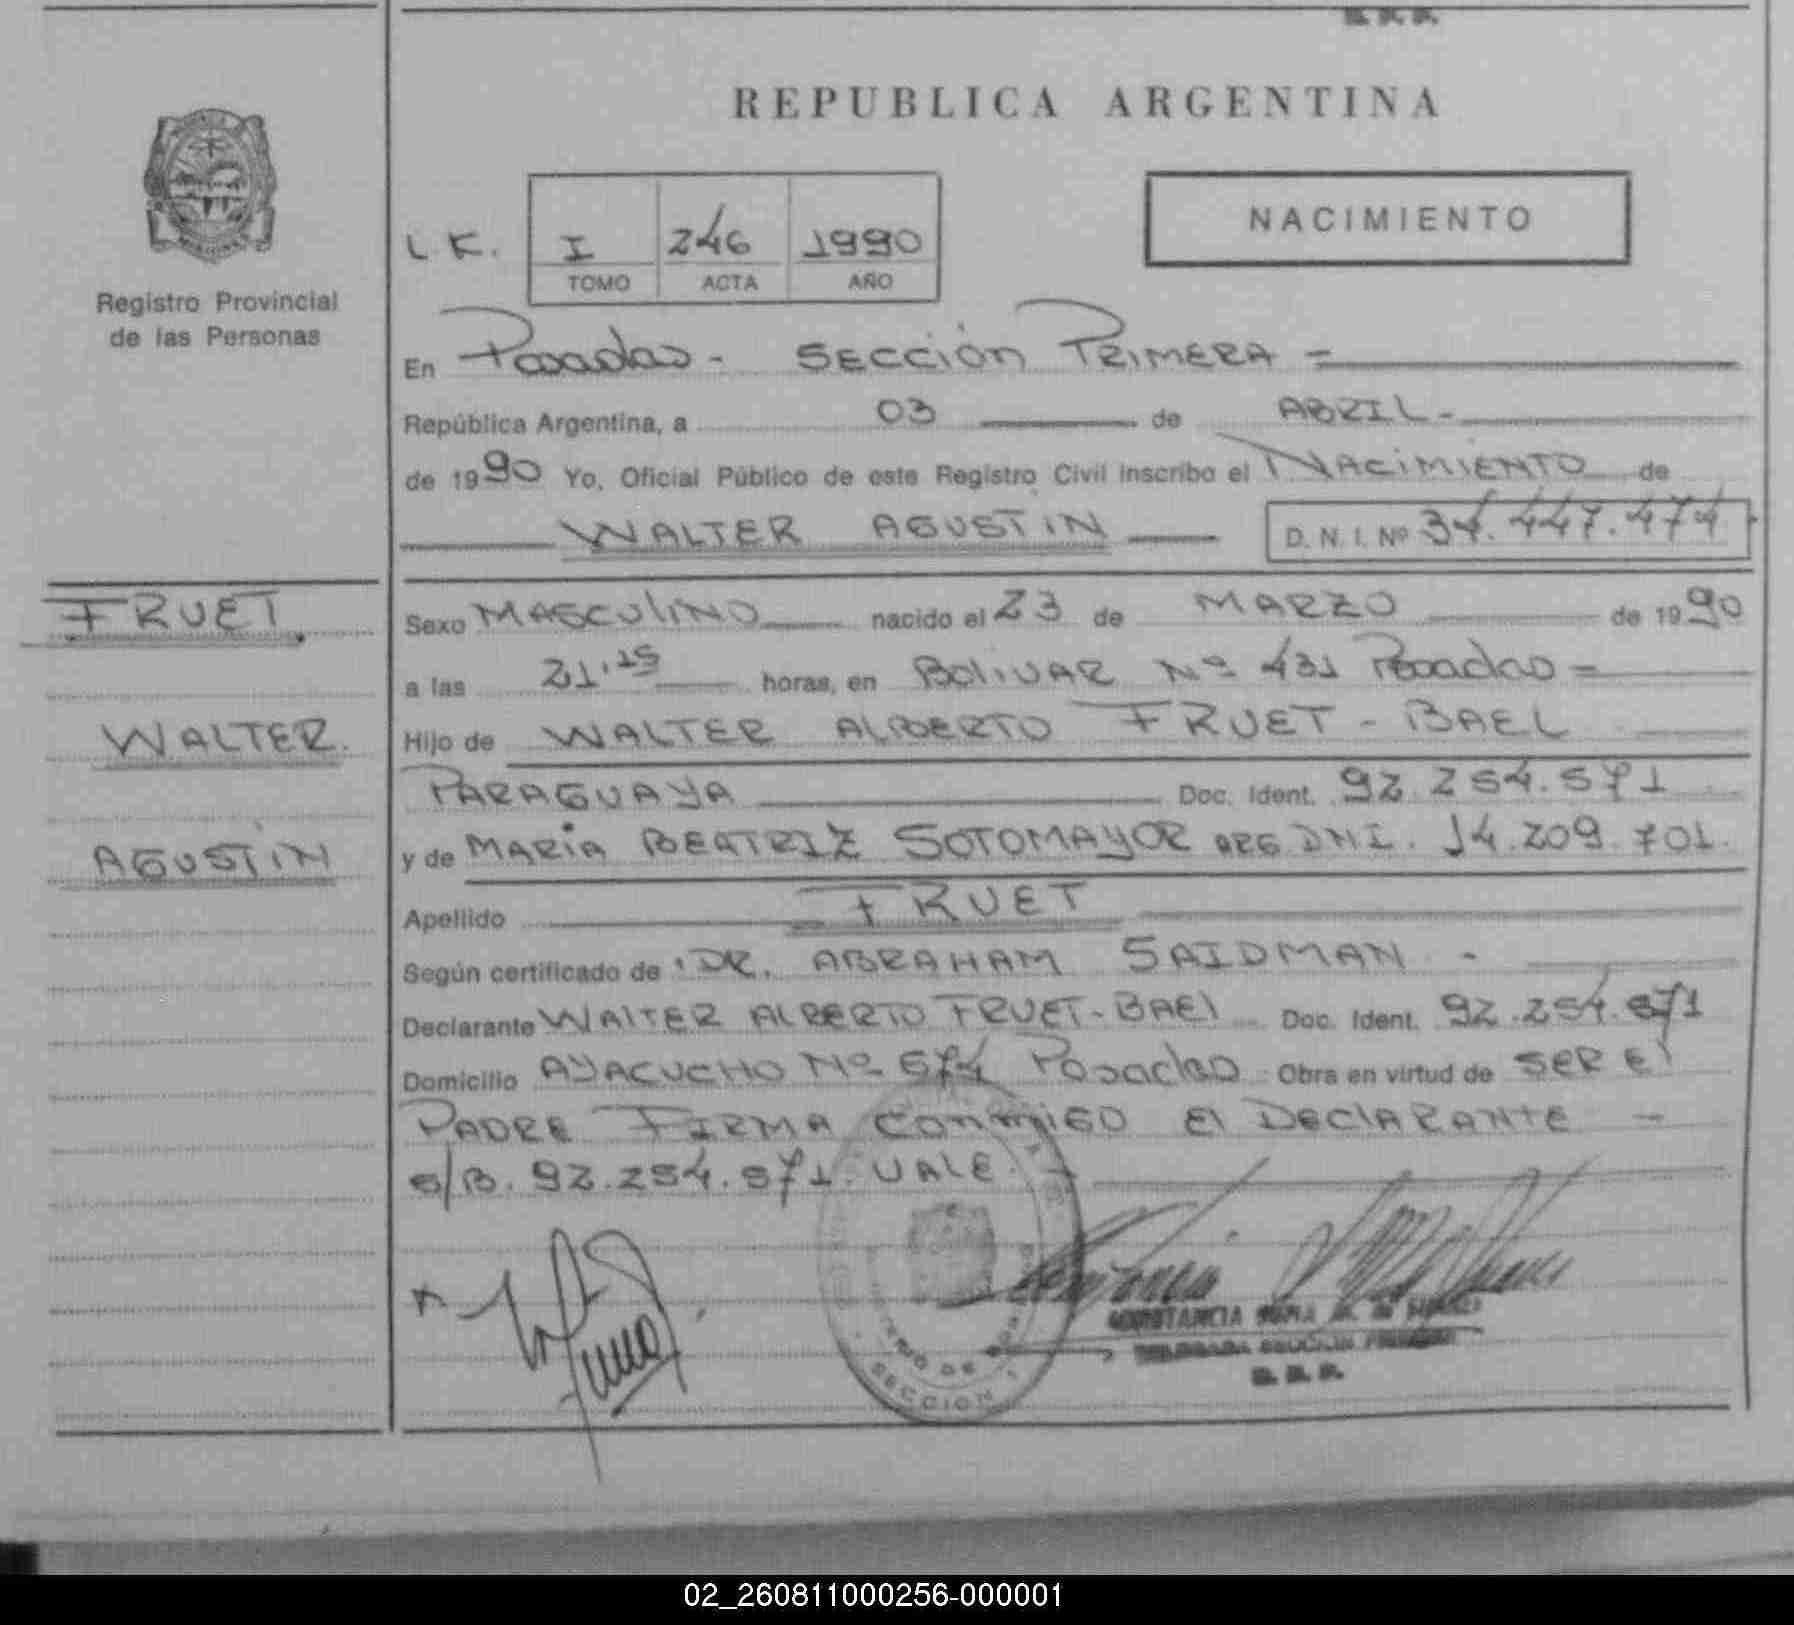 REPUBLICA ARGENTINA
Registro Provincial
de las Personas
L. K.
I 246 1990
TOMO ACTA AÑO
NACIMIENTO
En Posadas - SECCIÓN PRIMERA =
República Argentina, a 03 de ABRIL -
de 1990 Yo, Oficial Público de este Registro Civil inscribo el NACIMIENTO de
WALTER AGUSTIN D. N. I. Nº 34.447.474
FRUET
WALTER
AGUSTIN
Sexo MASCULINO nacido el 23 de MARZO de 1990
a las 21.15 horas, en BOLIVAR Nº 431 Posadas =
Hijo de WALTER ALBERTO FRUET - BAEL
PARAGUAYA Doc. Ident. 92.254.571
y de MARIA BEATRIZ SOTOMAYOR ARG DNI. 14.209.701.
Apellido FRUET
Según certificado de DR. ABRAHAM SAIDMAN -
Declarante WALTER ALBERTO FRUET - BAEL Doc. Ident. 92.254.571
Domicilio AYACUCHO Nº 674 Posadas Obra en virtud de SER El
PADRE FIRMA CONMIGO El DECLARANTE -
S/B. 92.254.571. VALE. -
SECCION 1
02_260811000256-000001